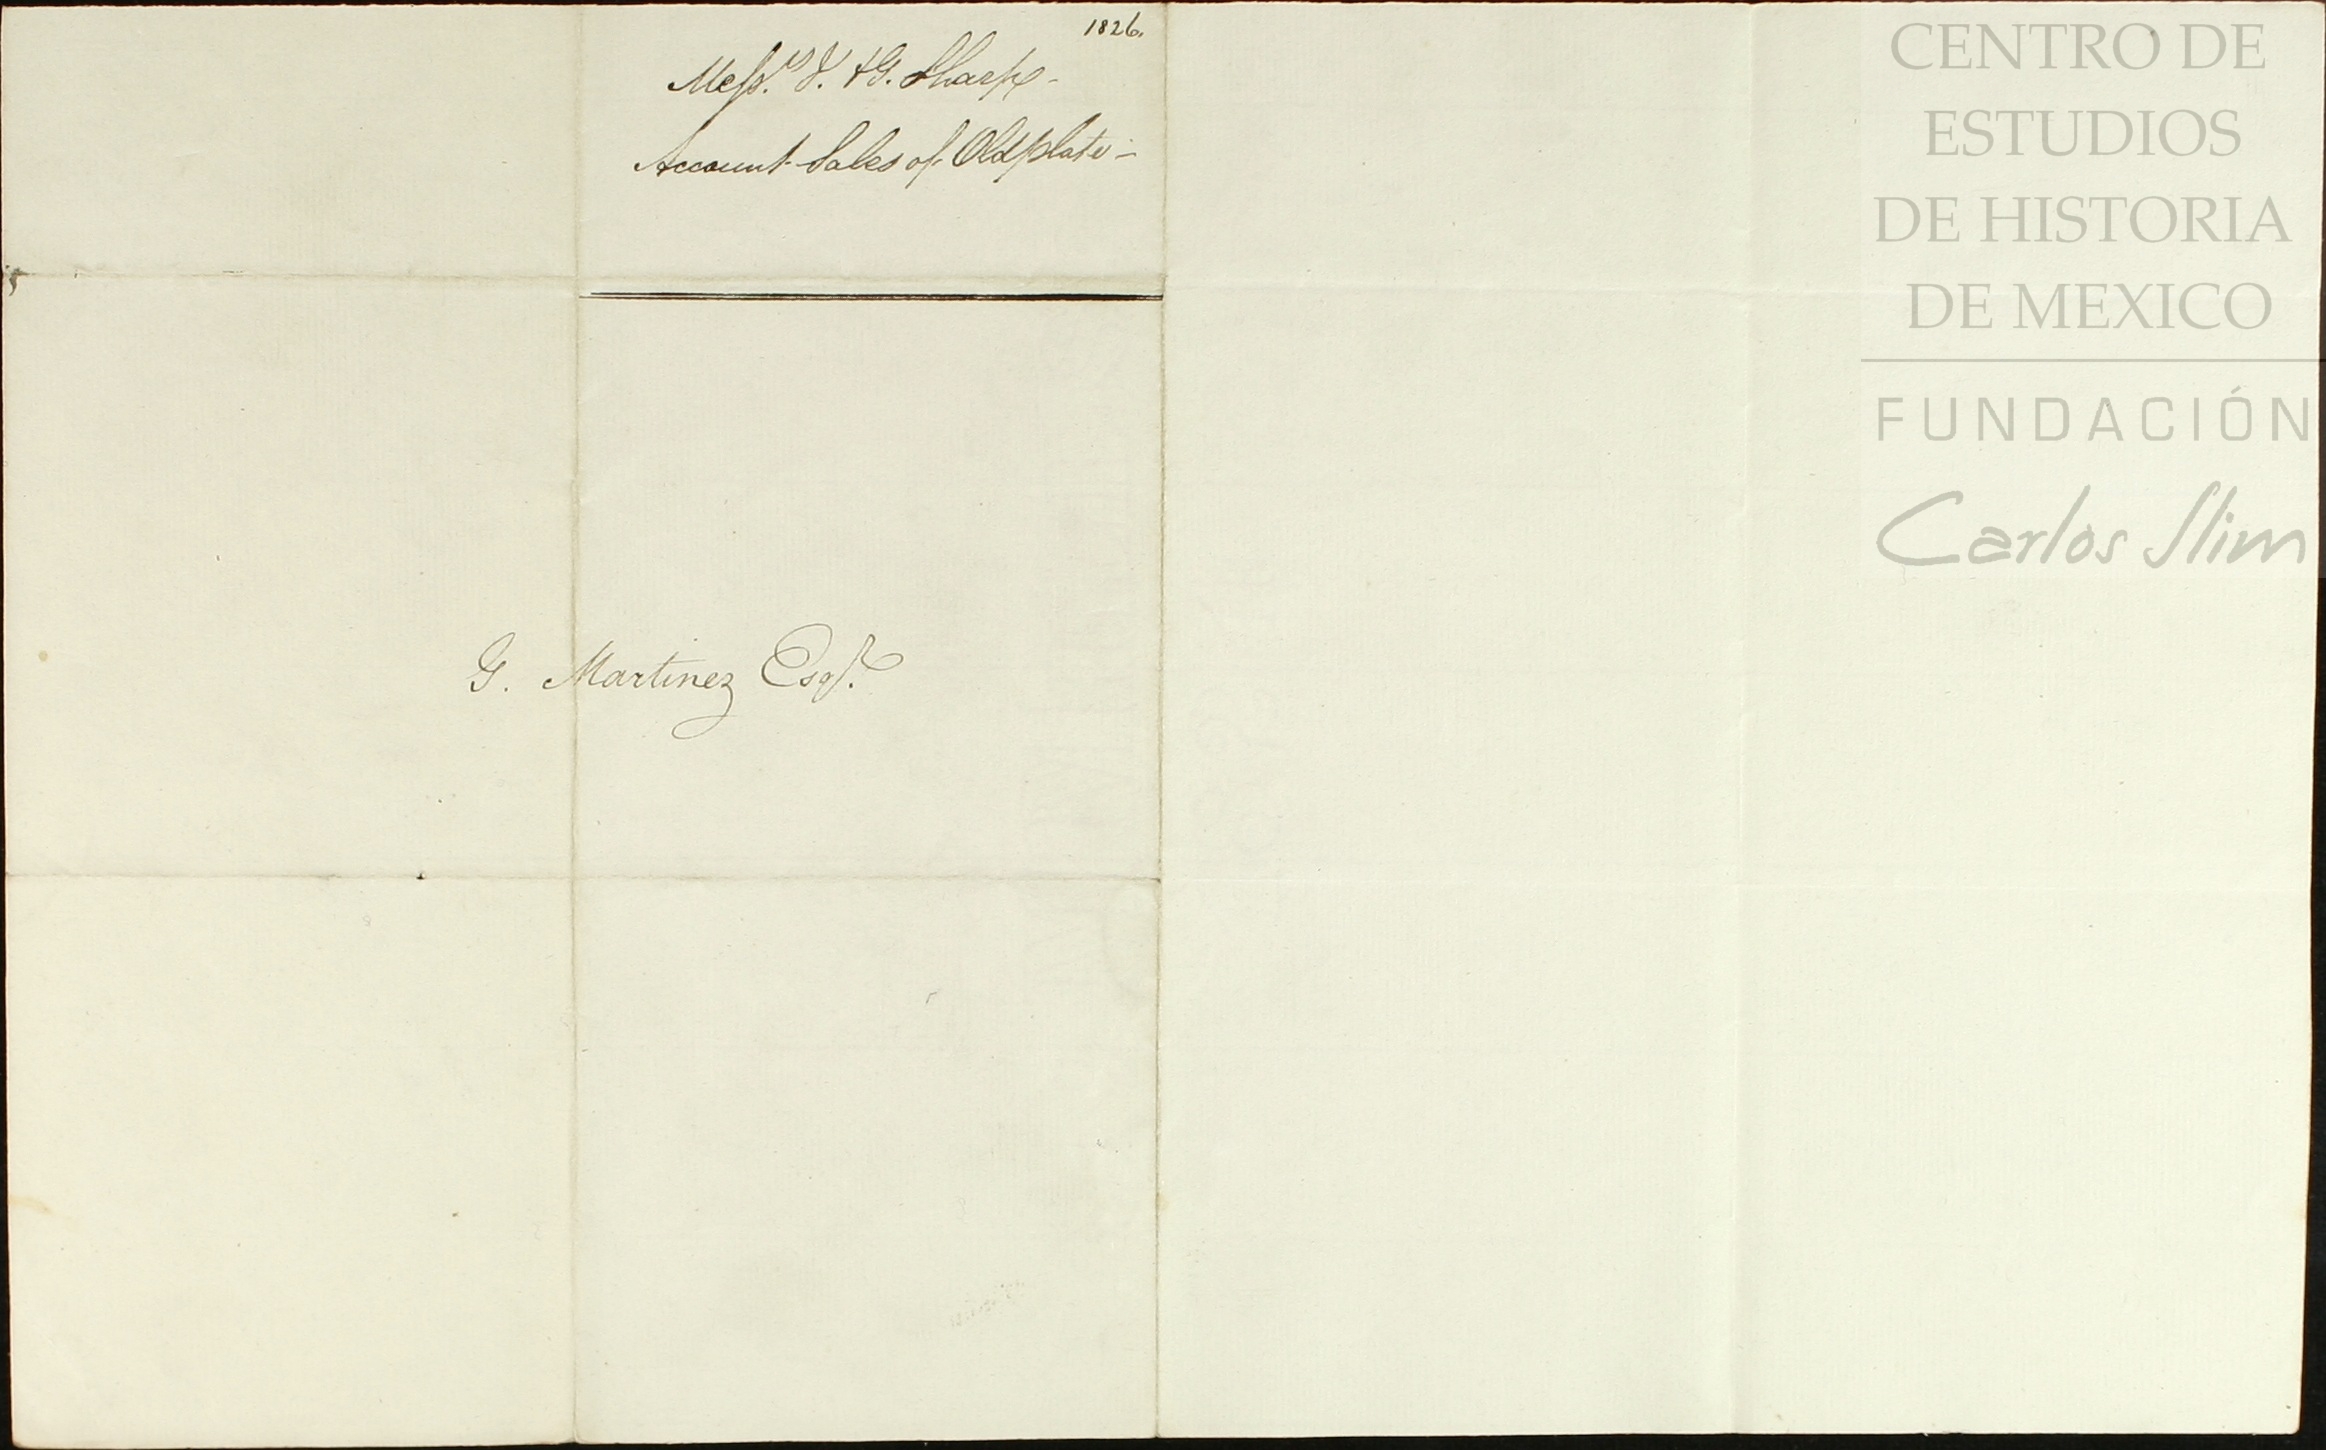 1826.
Messrs J. & G. Sharp -
Account Sales of Old plate -
G. Martinez Esqr.
CENTRO DE
ESTUDIOS
DE HISTORIA
DE MEXICO
FUNDACIÓN
Carlos Slim